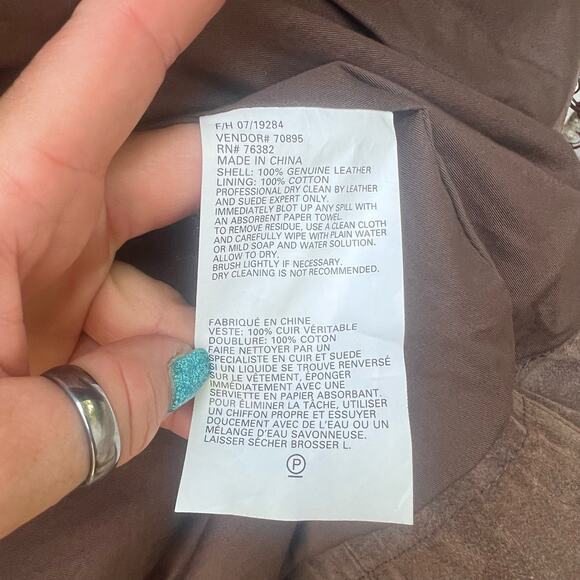 F/H 07/19284
VENDOR# 70895
RN# 76382
MADE IN CHINA
SHELL: 100% GENUINE LEATHER
LINING: 100% COTTON
PROFESSIONAL DRY CLEAN BY LEATHER
AND SUEDE EXPERT ONLY.
IMMEDIATELY BLOT UP ANY SPILL WITH
AN ABSORBENT PAPER TOWEL.
TO REMOVE RESIDUE, USE A CLEAN CLOTH
AND CAREFULLY WIPE WITH PLAIN WATER
OR MILD SOAP AND WATER SOLUTION.
ALLOW TO DRY.
BRUSH LIGHTLY IF NECESSARY.
DRY CLEANING IS NOT RECOMMENDED.
FABRIQUÉ EN CHINE
VESTE: 100% CUIR VÉRITABLE
DOUBLURE: 100% COTON
FAIRE NETTOYER PAR UN
SPECIALISTE EN CUIR ET SUEDE
SI UN LIQUIDE SE TROUVE RENVERSÉ
SUR LE VÊTEMENT, ÉPONGER
IMMÉDIATEMENT AVEC UNE
SERVIETTE EN PAPIER ABSORBANT.
POUR ÉLIMINER LA TÂCHE, UTILISER
UN CHIFFON PROPRE ET ESSUYER
DOUCEMENT AVEC DE L'EAU OU UN
MÉLANGE D'EAU SAVONNEUSE.
LAISSER SÉCHER BROSSER L.
P